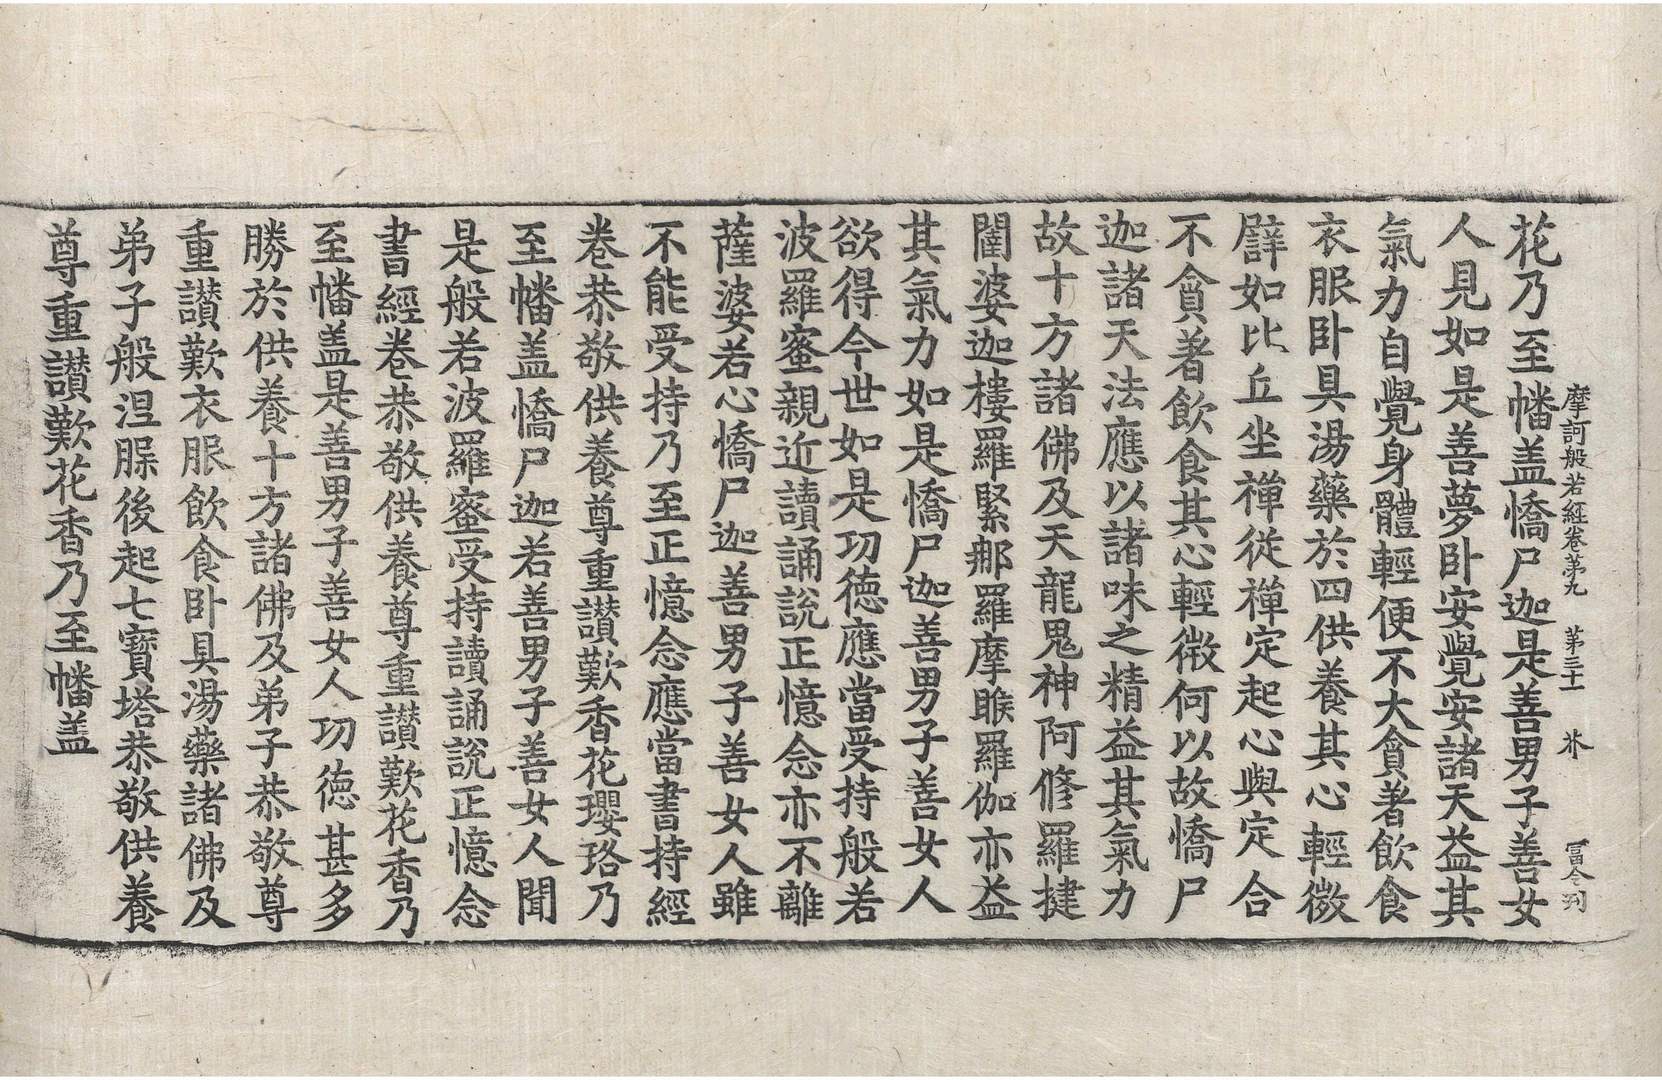 摩訶般若經卷第九 第三十一 芥 冨令刋
花乃至幡盖憍尸迦是善男子善女
人見如是善夢卧安覺安諸天益其
氣力自覺身體輕便不大貪著飲食
衣服卧具湯藥於四供養其心輕微
譬如比丘坐禪從禪定起心與定合
不貪著飲食其心輕微何以故憍尸
迦諸天法應以諸味之精益其氣力
故十方諸佛及天龍鬼神阿修羅揵
闥婆迦樓羅緊那羅摩睺羅伽亦益
其氣力如是憍尸迦善男子善女人
欲得今世如是功德應當受持般若
波羅蜜親近讀誦說正憶念亦不離
薩婆若心憍尸迦善男子善女人雖
不能受持乃至正憶念應當書持經
卷恭敬供養尊重讃歎香花瓔珞乃
至幡盖憍尸迦若善男子善女人聞
是般若波羅蜜受持讀誦說正憶念
書經卷恭敬供養尊重讃歎花香乃
至幡盖是善男子善女人功德甚多
勝於供養十方諸佛及弟子恭敬尊
重讃歎衣服飲食卧具湯藥諸佛及
弟子般涅槃後起七寶塔恭敬供養
尊重讃歎花香乃至幡盖